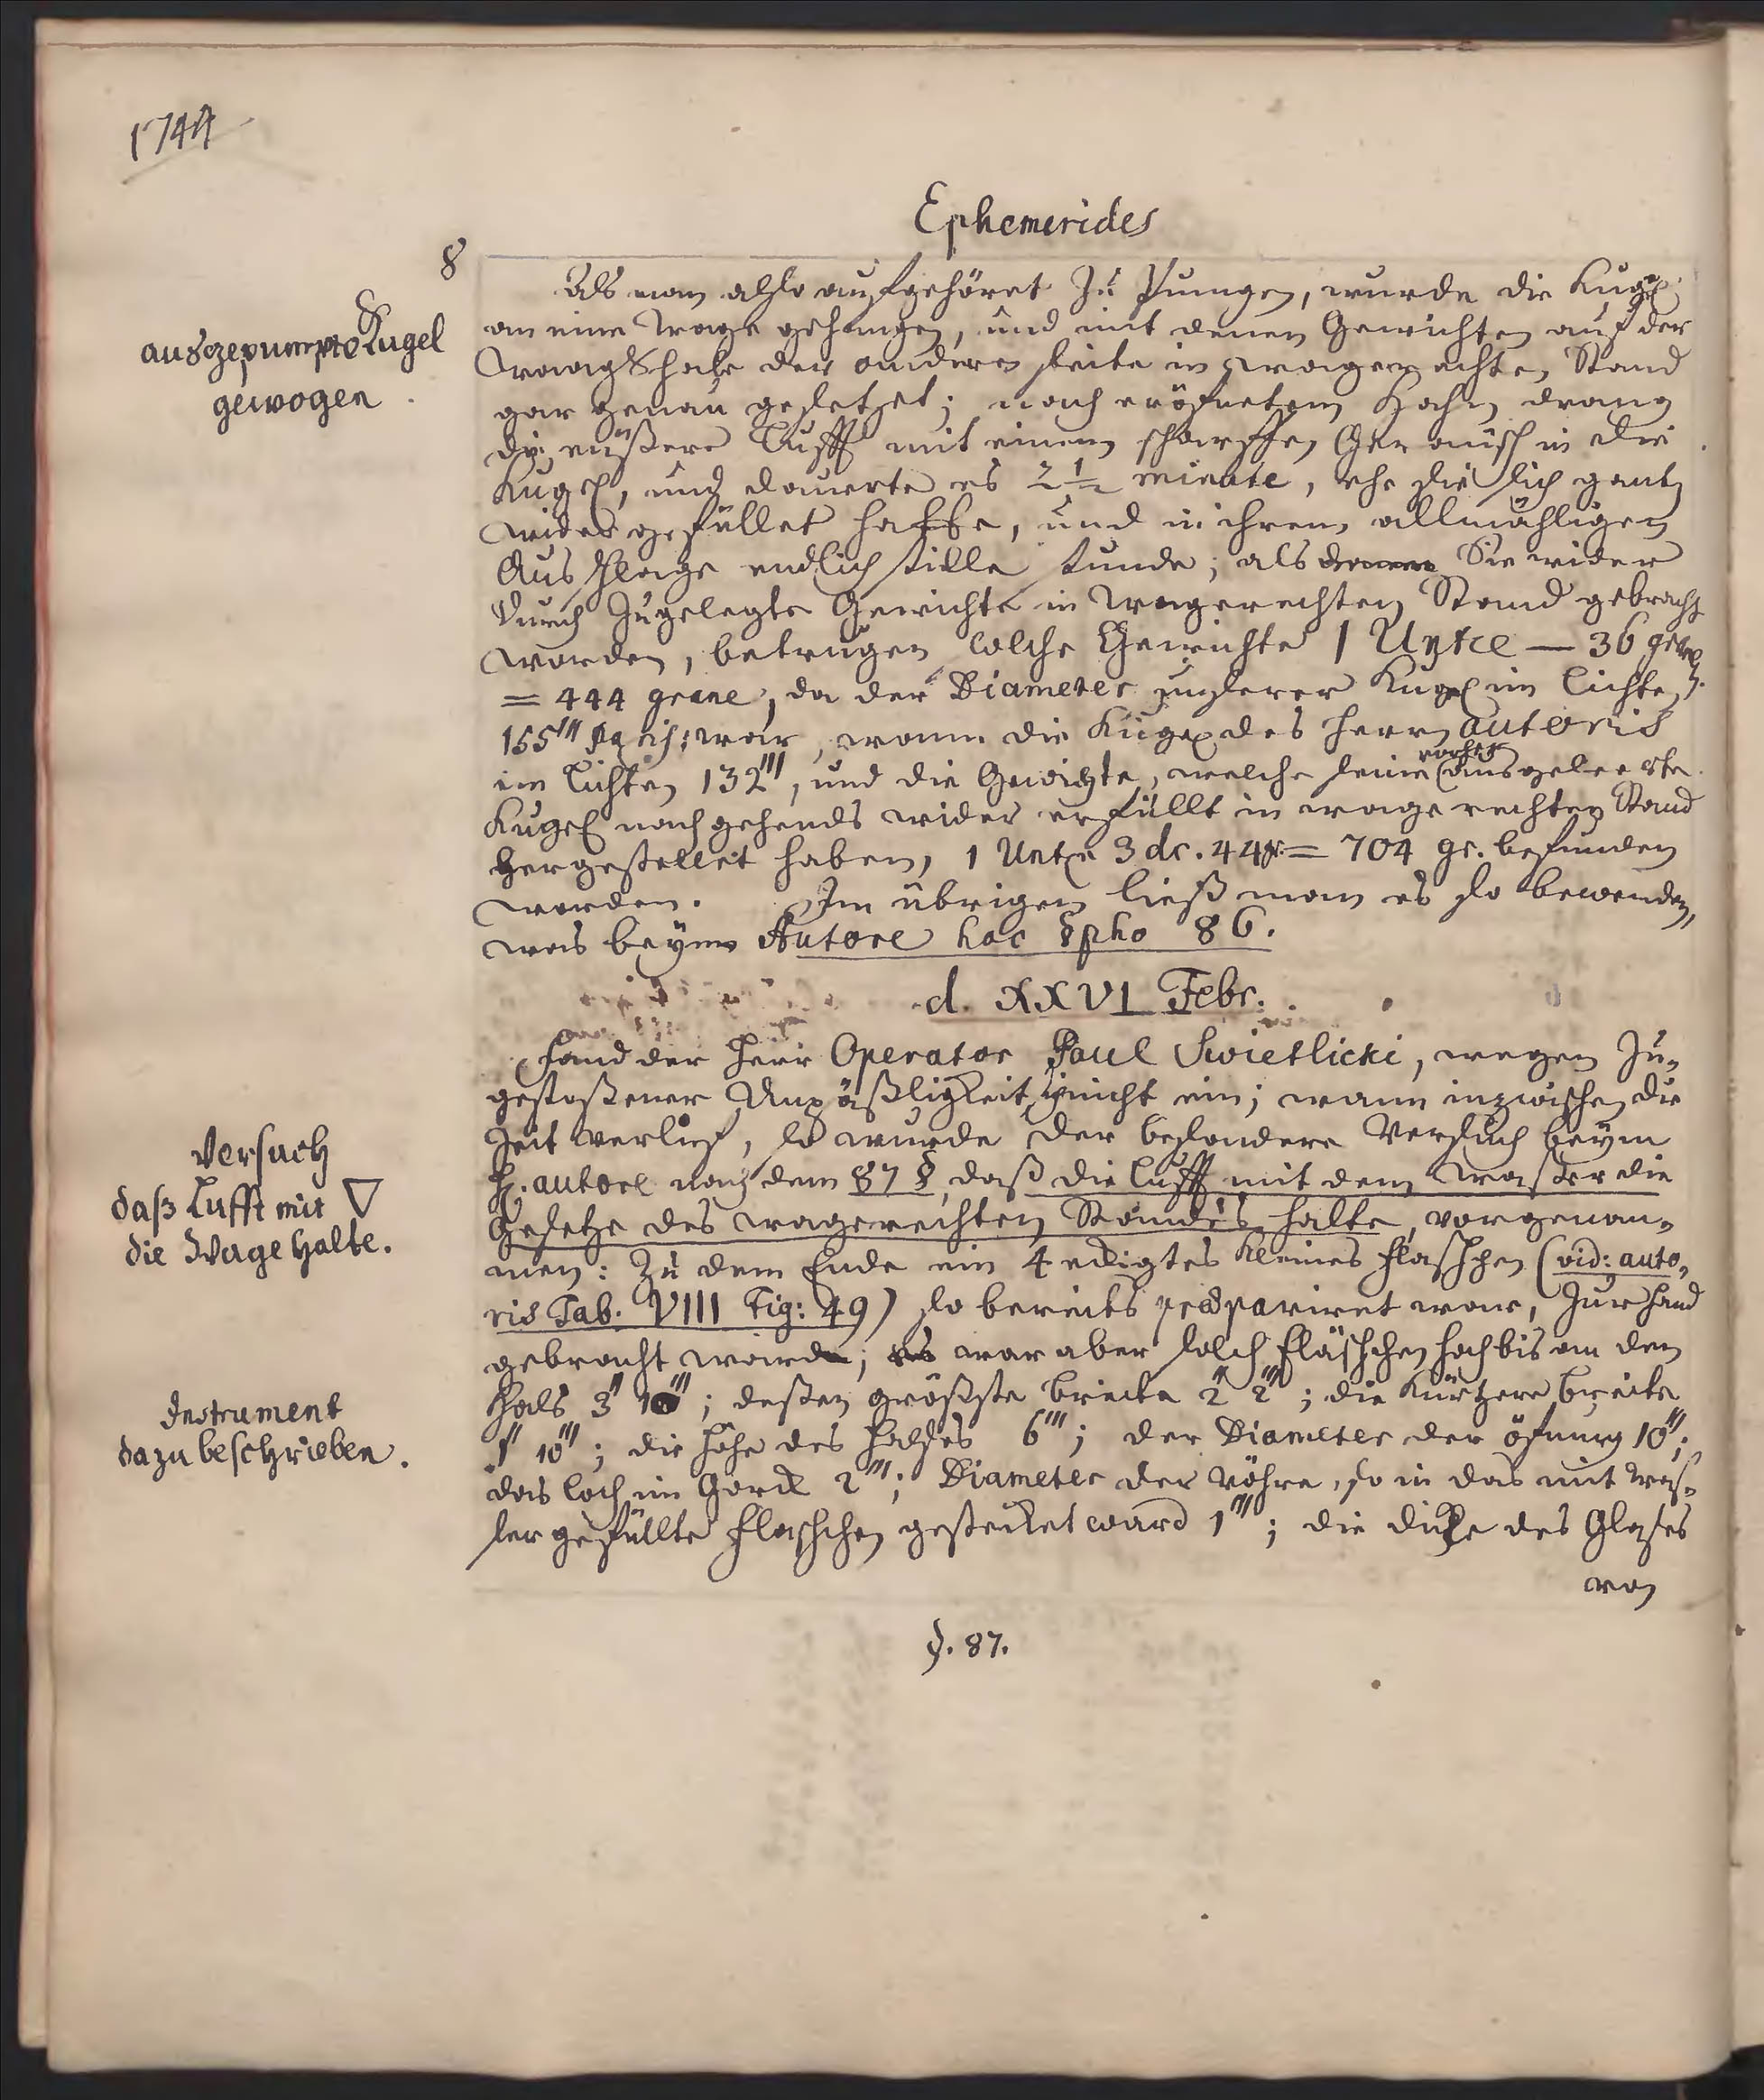 1744
Ephemerides
8
Als man also aufgehöret zu Pumpen, wurde die Kugel
ausgepumpte Kugel
gewogen
an eine Wage gehangen, und mit denen Gewichten auf der
Waagschale der anderen seite in wagerechten Stand
gar genau gesetzet; nach eröfnetem Hahn drang
die eüßere Lufft mit einem scharffen Geräusch in die
Kugel, und dauerte es 2 1/2 minute, ehe sie sich gantz
wider gefüllet hatte, und in ihrem allmähligen
Ausschlage endlich stille stunde; als denn Sie wider
durch zugelegte Gewichte in wagerechten Stand gebracht
worden, betrugen solche Gewichte 1 Untze — 36 gran
= 444 grane, da der Diameter unserer Kugel im Lichten
155''' war, wann die Kugel des Herrn autoris
im Lichten 132''', und die Gewichte, welche seine vorher ausgeleerte
Kugel nachgehends wider erfüllt in wagerechten Stand
hergestellet haben, 1 Untze 3 dr. 44 gr. = 704 gr. befunden
worden. Im übrigen ließ man es so bewenden,
was beym Autore hac §pho 86.
d. XXVI Febr.
fand der Herr Operator Paul Swietlicki, wegen Zu-
gestoßener Unpäßligkeit sich nicht ein; wann inzwischen die
Zeit verlief, so wurde der besondere Versuch beym
H. autore nach dem 87 §, daß die Lufft mit dem Waßer die
Gesetze des wagerechten Standes halte, vorgenom-
men: Zu dem Ende ein 4 eckigtes kleines Flaschchen (vid: auto-
ris Tab. VIII Fig: 49) so bereits præpariret war, zur hand
gebracht ward; es war aber solch Fläschchen hoch bis an den
Hals 3'' 10'''; deßen größste breite 2'' 2'''; die kürtzere breite
1'' 10'''; die Höhe des Halses 6'''; der Diameter der öfnung 10''';
das Loch im Gork 2'''; Diameter der Röhre, so in das mit Was-
ser gefüllte Flaschchen gestecket ward 1'''; die dicke des Glases
von
Versuch
daß Lufft mit ▽
die Wage halte.
Instrument
dazu beschrieben.
§. 87.